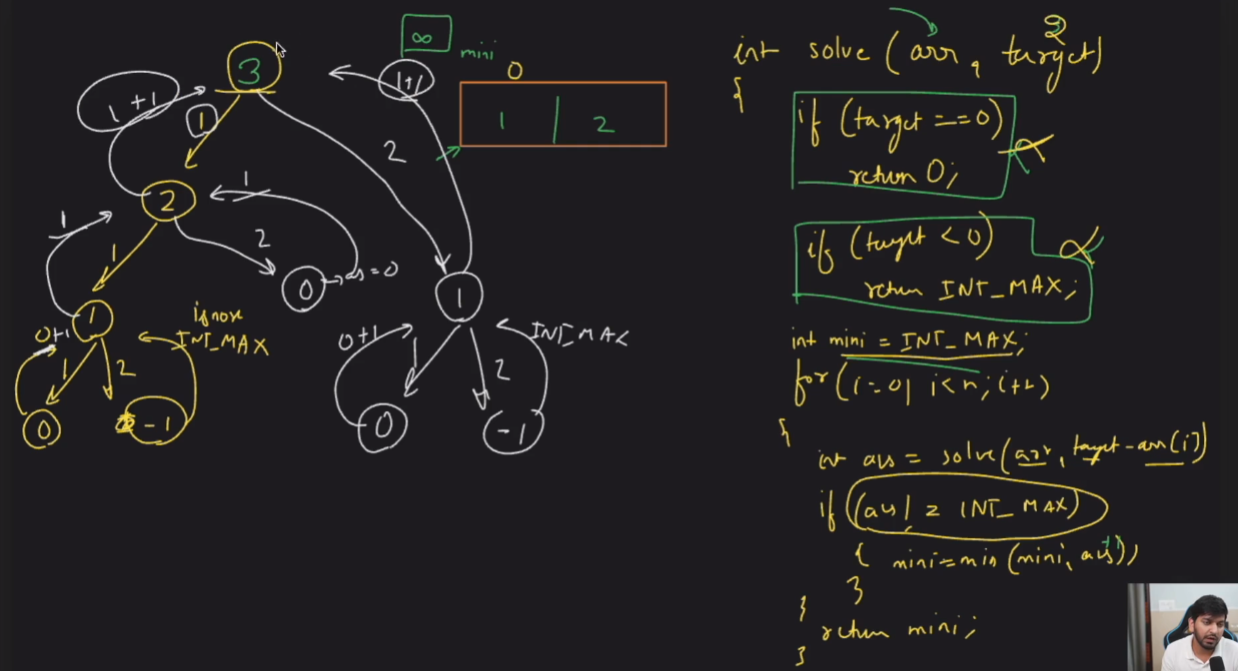 ∞
mini
3
1+1
1
2
1+1
0
1 | 2
2
1
2
1
1
0 → as = 0
1
1
ignore
INT_MAX
0+1
1
2
0
-1
1
0+1
1
2
INT_MAX
0
-1
2
int solve (arr, target)
{
if (target ==0)
return 0;
if (target < 0)
return INT_MAX;
int mini = INT_MAX;
for (i=0; i<n; i++)
{
int ans = solve(arr, target-arr(i))
if (ans != INT_MAX)
{ mini=min (mini, ans+1))
}
}
return mini;
}